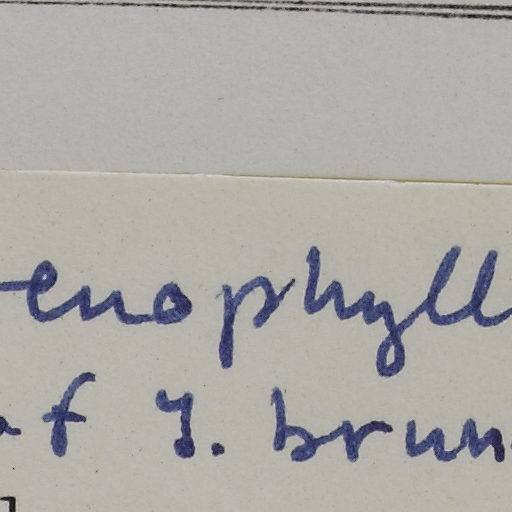 enophyll
f y. brun